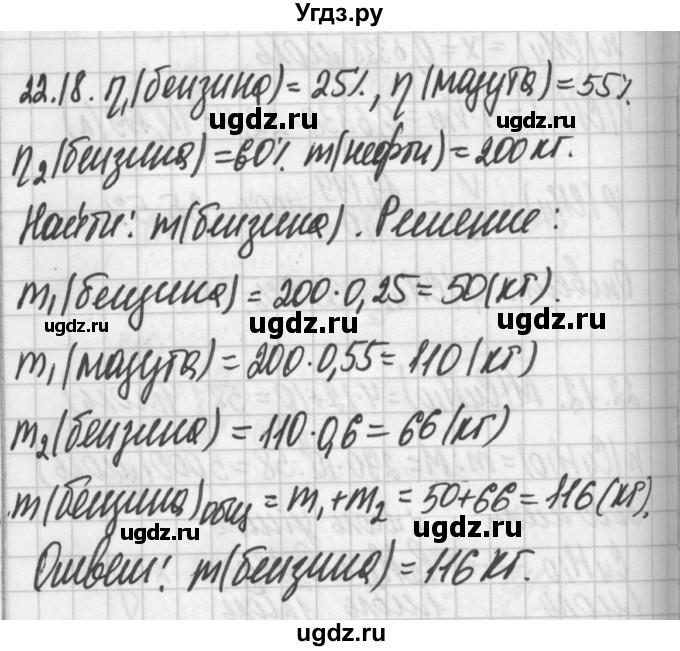 Угдз.ру
22.18. η₁(бензина)=25%, η(мазута)=55%.
η₂(бензина)=60% m(нефти)=200кг.
Найти: m(бензина). Решение:
m₁(бензина)=200·0,25=50(кг).
m₁(мазута)=200·0,55=110(кг)
m₂(бензина)=110·0,6=66(кг)
m(бензина)общ=m₁+m₂=50+66=116(кг).
Ответ: m(бензина)=116кг.
ugdz.ru
ugdz.ru
ugdz.ru
ugdz.ru
ugdz.ru
ugdz.ru
ugdz.ru
ugdz.ru
ugdz.ru